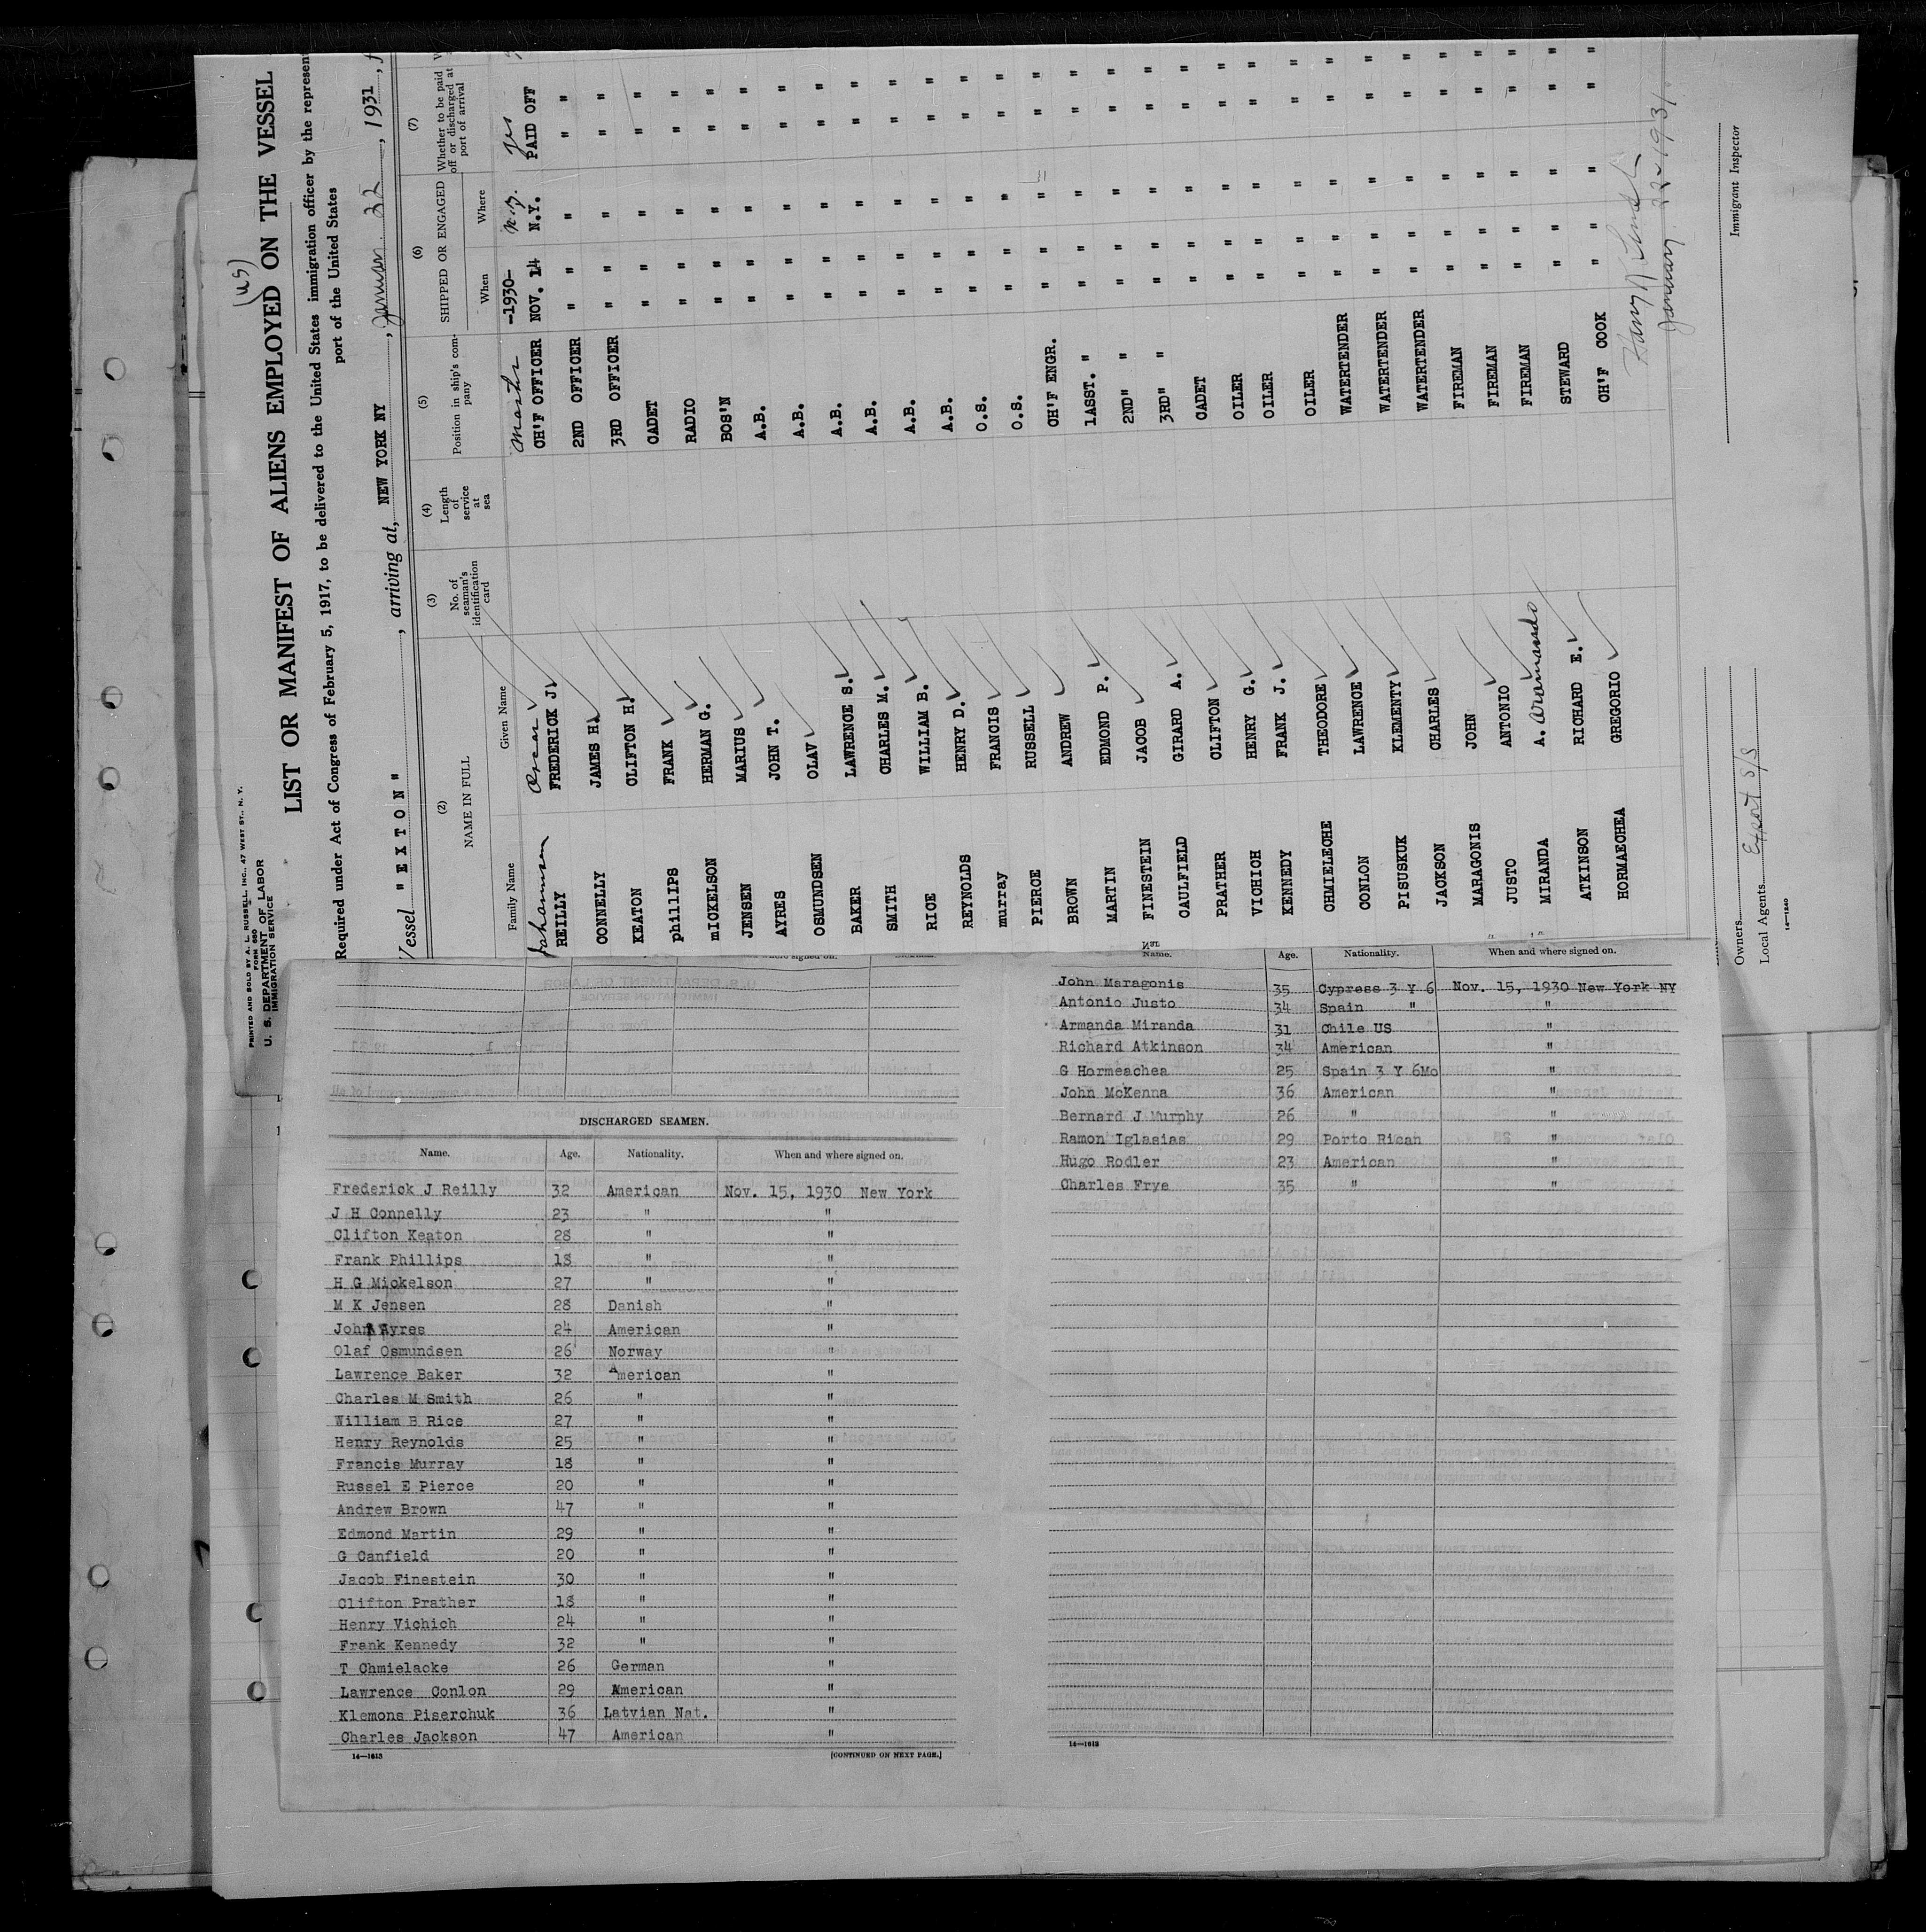 (US)
PRINTED AND SOLD BY A. L. RUSSELL, INC., 47 WEST ST., N. Y.
FORM 680
U. S. DEPARTMENT OF LABOR
IMMIGRATION SERVICE
LIST OR MANIFEST OF ALIENS EMPLOYED ON THE VESSEL
Required under Act of Congress of February 5, 1917, to be delivered to the United States immigration officer by the represent
port of the United States
Vessel "EXTON", arriving at, NEW YORK NY, January 22, 1931, f
(2) (3) (4) (5) (6) (7)
NAME IN FULL No. of seaman's identification card Length of service at sea Position in ship's company SHIPPED OR ENGAGED Whether to be paid off or discharged at port of arrival W
Family Name Given Name When Where
Oscar Master -1930- N.Y. Yes
REILLY FREDERICK J. CH'F OFFICER NOV. 14 N.Y. PAID OFF
CONNELLY JAMES H. 2ND OFFICER " " " " "
KEATON CLIFTON H. 3RD OFFICER " " " " "
phillips FRANK CADET " " " " "
mICKELSON HERMAN G. RADIO " " " " "
JENSEN MARIUS BOS'N " " " " "
AYRES JOHN T. A.B. " " " " "
OSMUNDSEN OLAV A.B. " " " " "
BAKER LAWRENCE S. A.B. " " " " "
SMITH CHARLES M. A.B. " " " " "
RICE WILLIAM B. A.B. " " " " "
REYNOLDS HENRY D. A.B. " " " " "
murray FRANCIS O.S. " " " " "
PIERCE RUSSELL O.S. " " " " "
BROWN ANDREW CH'F ENGR. " " " " "
MARTIN EDMOND P. 1ASST. " " " " " "
FINESTEIN JACOB 2ND" " " " " " "
CAULFIELD GIRARD A. 3RD" " " " " " "
PRATHER CLIFTON CADET " " " " "
VICHICH HENRY G. OILER " " " " "
KENNEDY FRANK J. OILER " " " " "
CHMIELECHE THEODORE OILER " " " " "
CONLON LAWRENCE WATERTENDER " " " " "
PISUSKUK KLEMENTY WATERTENDER " " " " "
JACKSON CHARLES WATERTENDER " " " " "
MARAGONIS JOHN FIREMAN " " " " "
JUSTO ANTONIO FIREMAN " " " " "
MIRANDA A. Aramando FIREMAN " " " " "
ATKINSON RICHARD E. STEWARD " " " " "
HORMAECHEA GREGORIO CH'F COOK " " " " "
January 22 1931
Immigrant Inspector
Owners
Local Agents Export S/S
14—1240
DISCHARGED SEAMEN.
Name. Age. Nationality. When and where signed on.
Frederick J Reilly 32 American Nov. 15, 1930 New York
J H Connelly 23 " "
Clifton Keaton 28 " "
Frank Phillips 18 " "
H G Mickelson 27 " "
M K Jensen 28 Danish "
John Ayres 24 American "
Olaf Osmundsen 26 Norway "
Lawrence Baker 32 American "
Charles M Smith 26 " "
William B Rice 27 " "
Henry Reynolds 25 " "
Francis Murray 18 " "
Russel E Pierce 20 " "
Andrew Brown 47 " "
Edmond Martin 29 " "
G Canfield 20 " "
Jacob Finestein 30 " "
Clifton Prather 18 " "
Henry Vichich 24 " "
Frank Kennedy 32 " "
T Chmielacke 26 German "
Lawrence Conlon 29 American "
Klemons Piserchuk 36 Latvian Nat. "
Charles Jackson 47 American "
14—1613 [CONTINUED ON NEXT PAGE.]
Name. Age. Nationality. When and where signed on.
John Maragonis 35 Cypress 3 Y 6 Nov. 15, 1930 New York NY
Antonio Justo 34 Spain " "
Armanda Miranda 31 Chile US "
Richard Atkinson 34 American "
G Hormeachea 25 Spain 3 Y 6Mo "
John McKenna 36 American "
Bernard J Murphy 26 " "
Ramon Iglasias 29 Porto Rican "
Hugo Rodler 23 American "
Charles Frye 35 " "
14—1613